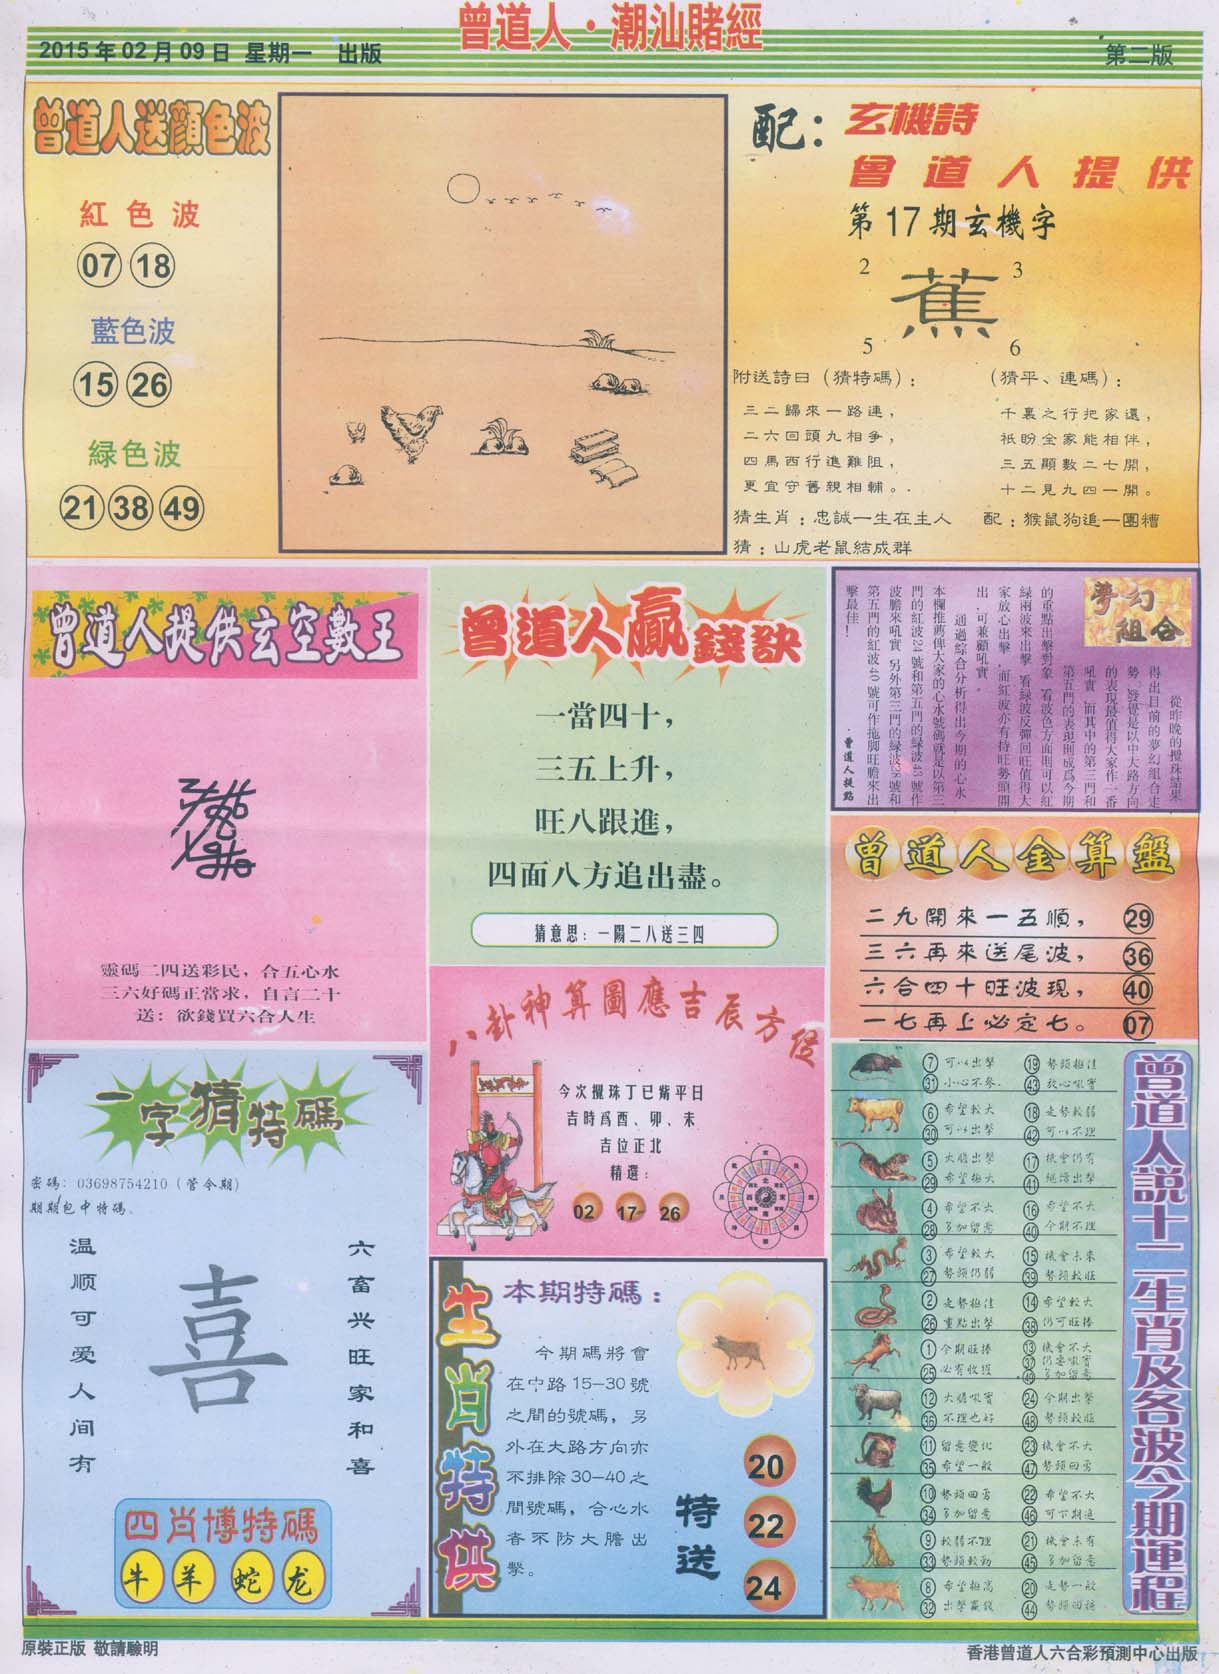 曾道人·潮汕賭經
2015年02月09日 星期一 出版
第二版
曾道人送顏色波
紅色波
07 18
藍色波
15 26
緑色波
21 38 49
配：玄機詩
曾道人提供
第17期玄機字
2 3
蕉
5 6
附送詩曰（猜特碼）：
三二歸來一路連，
二六回頭九相爭，
四馬西行進難阻，
更宜守舊親相輔。
（猜平、連碼）：
千裏之行把家還，
祇盼全家能相伴，
三五顯數二七開，
十二見九四一開。
猜生肖：忠誠一生在主人
配：猴鼠狗追一團糟
猜：山虎老鼠結成群
曾道人提供玄空數王
靈碼二四送彩民，合五心水
三六好碼正當求，自言二十
送：欲錢買六合人生
曾道人贏錢訣
一當四十，
三五上升，
旺八跟進，
四面八方追出盡。
猜意思：一陽二八送三四
夢幻
組合
從昨晚的攪珠結果
得出目前的夢幻組合走
勢，發覺是以中大路方向
的表現最值得大家作一番
吼實，而其中的第三門和
第五門的表現則成爲今期
的重點出擊對象，看波色方面則可以紅
緑兩波來出擊，看緑波反彈回旺值得大
家放心出擊，而紅波亦有持旺勢頭開
出，可兼顧吼實。
通過綜合分析得出今期的心水
本欄推薦俾大家的心水號碼就是以第三
門的紅波24號和第五門的緑波43號作
波膽來吼實，另外第三門的緑波28號和
第五門的紅波40號可作拖脚旺膽來出
擊最佳！
·曾道人提點
曾道人金算盤
二九開來一五順， 29
三六再來送尾波， 36
六合四十旺波現， 40
一七再上必定七。 07
八卦神算圖應吉辰方位
今次攪珠丁巳觜平日
吉時爲酉、卯、未
吉位正北
精選：
02 17 26
一字猜特碼
密碼：03698754210（管令期）
期期包中特碼。
六畜兴旺家和喜
喜
温顺可爱人间有
四肖博特碼
牛 羊 蛇 龙
生肖特供
本期特碼：
今期碼將會
在中路15—30號
之間的號碼，另
外在大路方向亦
不排除30—40之
間號碼，合心水
者不防大膽出
擊。
特送
20
22
24
曾道人說十二生肖及各波今期運程
7 可以出擊 19 勢頭極佳
31 小心不參. 43 放心吼實
6 希望較大 18 走勢較弱
30 可以出擊 42 可以不理
5 大膽出擊 17 機會仍有
29 希望極大 41 繩濟出擊
4 希望不大 16 希望不大
28 多加留意 40 今期不理
3 希望較大 15 機會未來
27 勢頭仍弱 39 勢頭較旺
2 走勢極佳 14 希望較大
26 重點出擊 38 仍可旺捧
1 今期旺捧 13 機會不大
37 仍要吼實
25 必有收獲 49 多加留意
12 大膽吼實 24 今期出擊
36 不理也好 48 勢頭較旺
11 留意變化 23 機會不大
35 希望一般 47 勢頭回勇
10 勢頭回勇 22 希望不大
34 多加留意 46 可下期追
9 較弱不理 21 機會未有
33 勢頭較勁 45 多加留意
8 希望極高 20 走勢一般
32 出擊贏錢 44 勢頭回轉
原裝正版 敬請驗明
香港曾道人六合彩預測中心出版